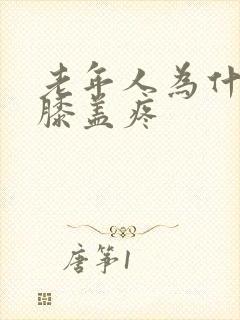 老年人为什
膝盖疼
唐筝1